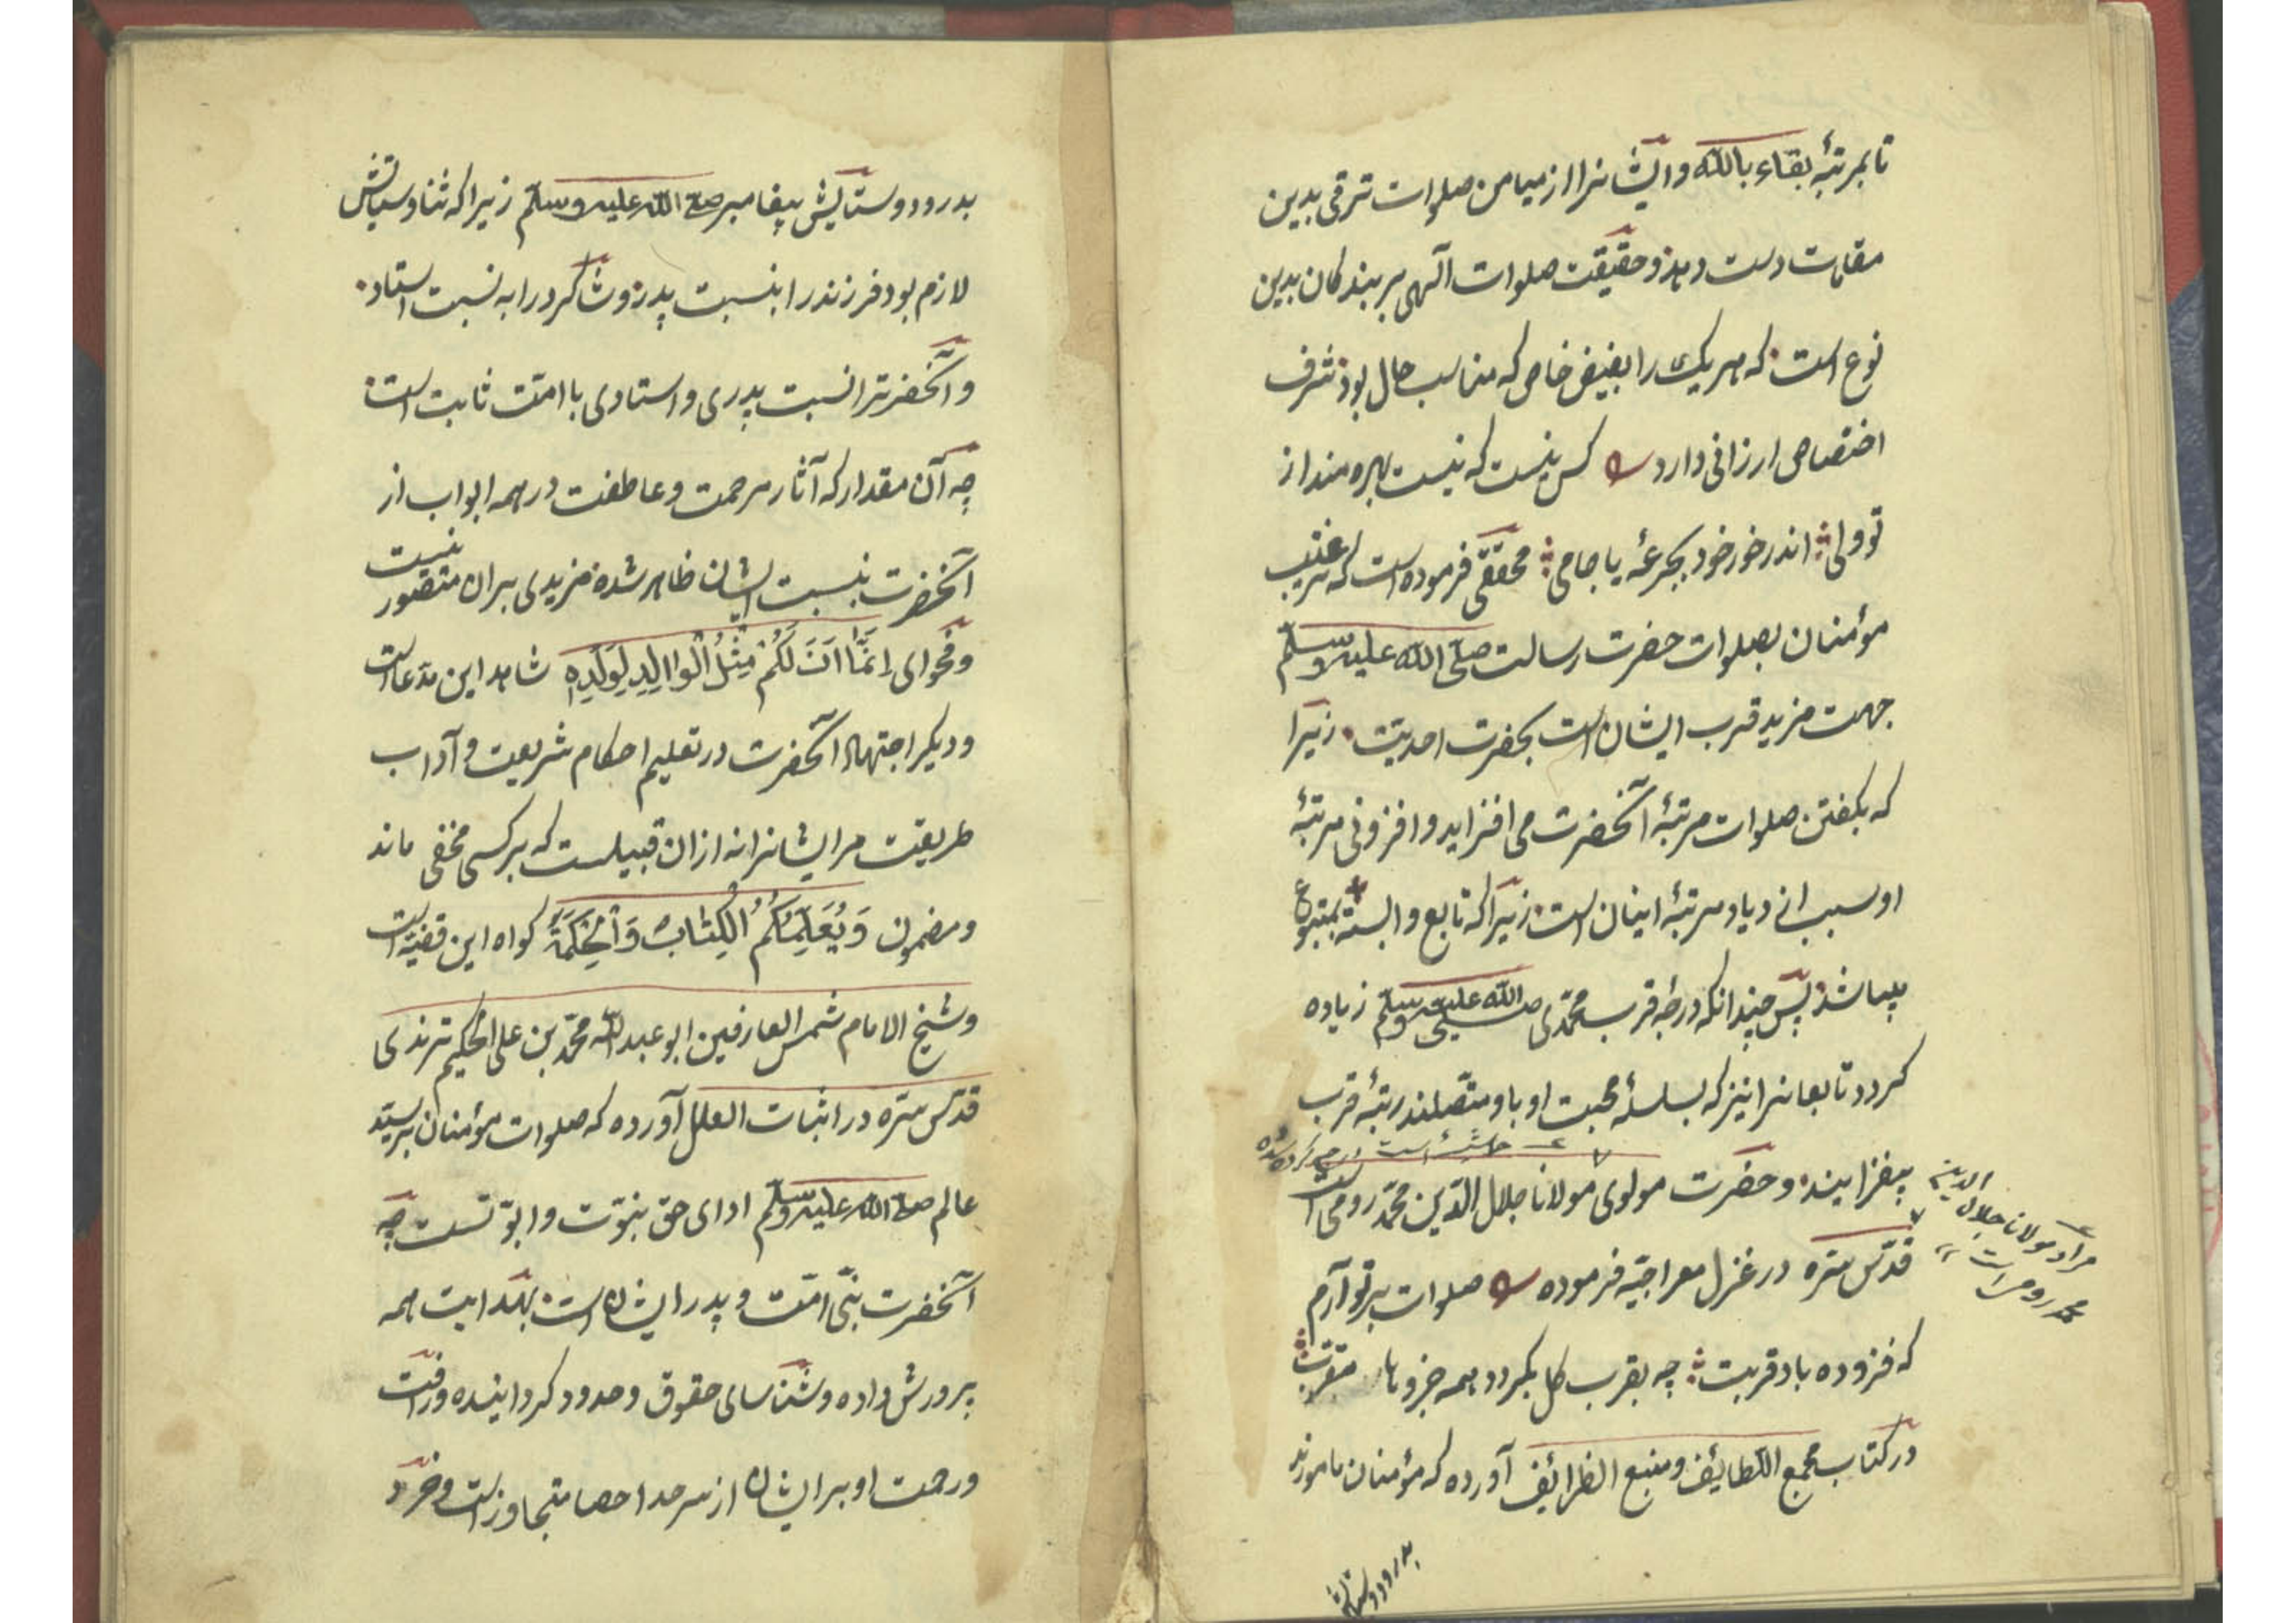 تا بمرتبهٔ بقاء بالله وایشانرا از میامن صلوات ترقی بدین
مقامات دست دهد و حقیقت صلوات الٓهی بر بندکان بدین
نوع است که هر یک را بفیض خاص که مناسب حال بود شرف
اختصاص ارزانی دارد کس نیست که نیست بهره مند از
تو ولی اندر خور خود بجرعهٔ یا جامی محققی فرموده است که ترغیب
مؤمنان بصلوات حضرت رسالت صلی الله علیه وسلم
جهت مزید قرب ایشان است بحضرت احدیت زیرا
که بکفتن صلوات مرتبهٔ آنحضرت می افزاید و افزونی مرتبهٔ
او سبب ازدیاد مرتبهٔ اینان است زیرا که تابع وابستهٔ بمتبوع
میباشد پس چندانکه درجهٔ قرب محمدی صلی الله علیه وسلم زیاده
کردد تابعانرا نیز که بسلسلهٔ محبت او با و متصلند رتبهٔ قرب
بیفزایند و حضرت مولوی مولانا جلال الدین محمد رومی است
مراد مولانا جلال الدین
محمد رومی است
قدس سره در غزل معراجیه فرموده صلوات بر تو آرم
که فزوده باد قربت چه بقرب کل بکردد همه جزوها مقرب
در کتاب مجمع اللطائف و منبع الظرائف آورده که مؤمنان مامورند
بدرود وستایش
بدرود وستایش پیغامبر صلی الله علیه وسلم زیرا که ثنا و سپاس
لازم بود فرزند را بنسبت پدر و شاکرد را به نسبت استاد
و آنحضرترا نسبت پدری و استادی با امت ثابت است
چه آن مقدار که آثار مرحمت و عاطفت در همه ابواب از
آنحضرت بنسبت ایشان ظاهر شده مزیدی بران متصور نیست
و فحوای اِنَّمَا اَنَا لَكُمْ مِثْلُ الْوَالِدِ لِوَلَدِهِ شاهد این مدعاست
و دیکر اجتهاد آنحضرت در تعلیم احکام شریعت و آداب
طریقت مر ایشانرا نه ازان قبیلست که بر کسی مخفی ماند
و مضمون وَيُعَلِّمُكُمُ الْكِتَابَ وَالْحِكْمَةَ کواه این قضیه است
و شیخ الامام شمس العارفین ابو عبدالله محمد بن علی الحکیم ترمذی
قدس سره در اثبات العلل آورده که صلوات مؤمنان بر سید
عالم صلی الله علیه وسلم ادای حق بنوت و ابوتست چه
آنحضرت نبی امت و پدر ایشان است بهدایت همه
پرورش داده و شناسای حقوق و حدود کردانیده و رأفت
و رحمت او بر ایشان از سرحد احصا متجاوز است و خرد